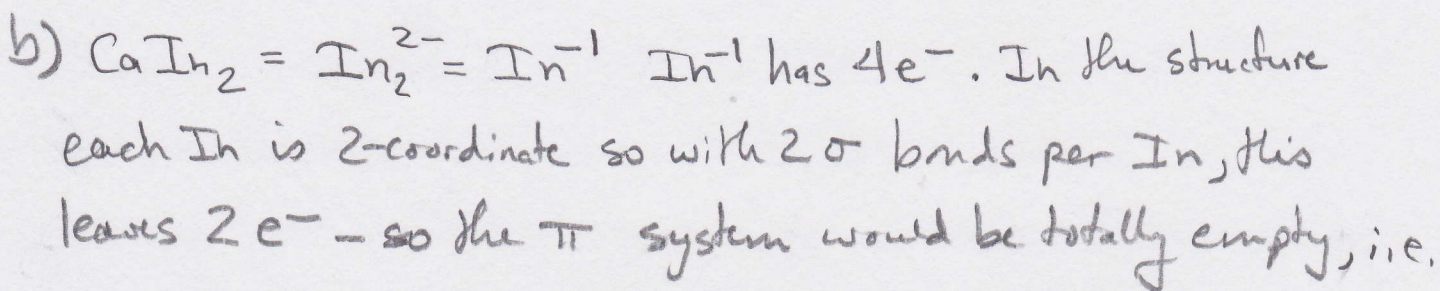 b) CaIn₂ = In₂²⁻ = In⁻¹ In⁻¹ has 4e⁻. In the structure
each In is 2-coordinate so with 2σ bonds per In, this
leaves 2e⁻ - so the π system would be totally empty, i.e.